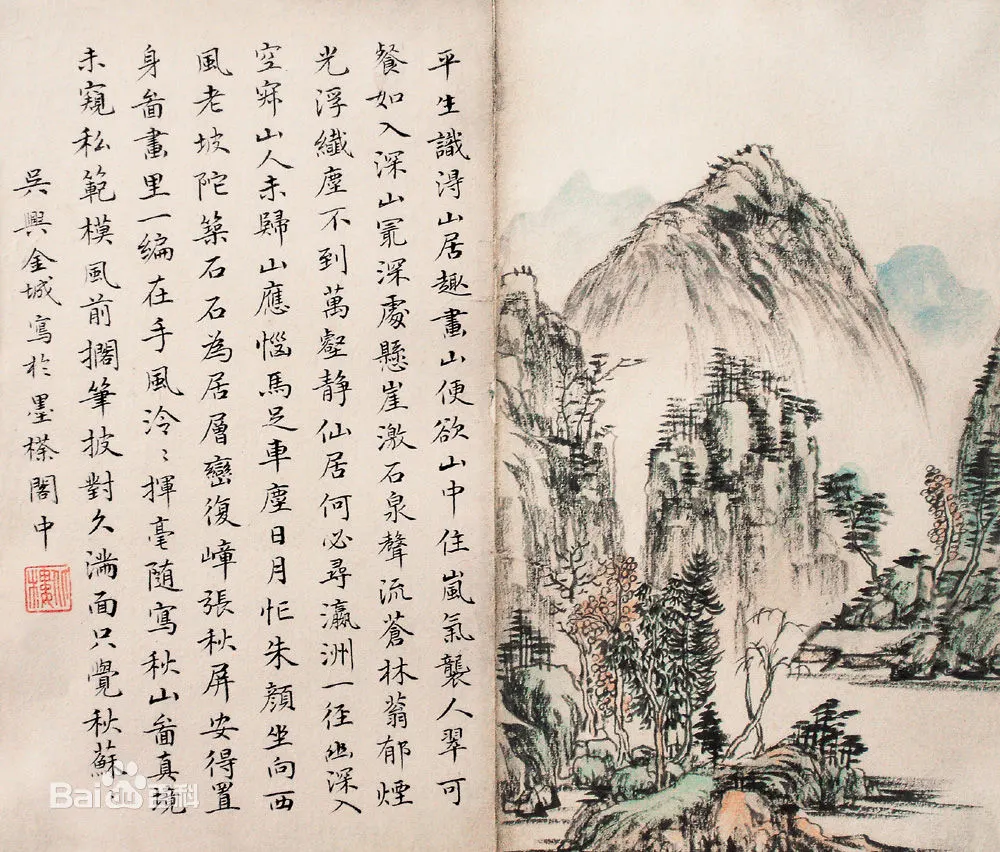 平生識淂山居趣畫山便欲山中住嵐氣襲人翠可
餐如入深山最深處懸崖激石泉聲流蒼林蓊郁煙
光浮纖塵不到萬壑靜仙居何必尋瀛洲一徑幽深入
空寂山人未歸山應惱馬足車塵日月忙朱顏坐向西
風老坡陀築石石為居層巒復嶂張秋屏安得置
身啚畫里一編在手風泠〻揮毫隨寫秋山啚真境
未窺私範模風前擱筆披對久滿面只覺秋蘇〻
吳興金城寫於墨槎閣中
北樓
Bai百科